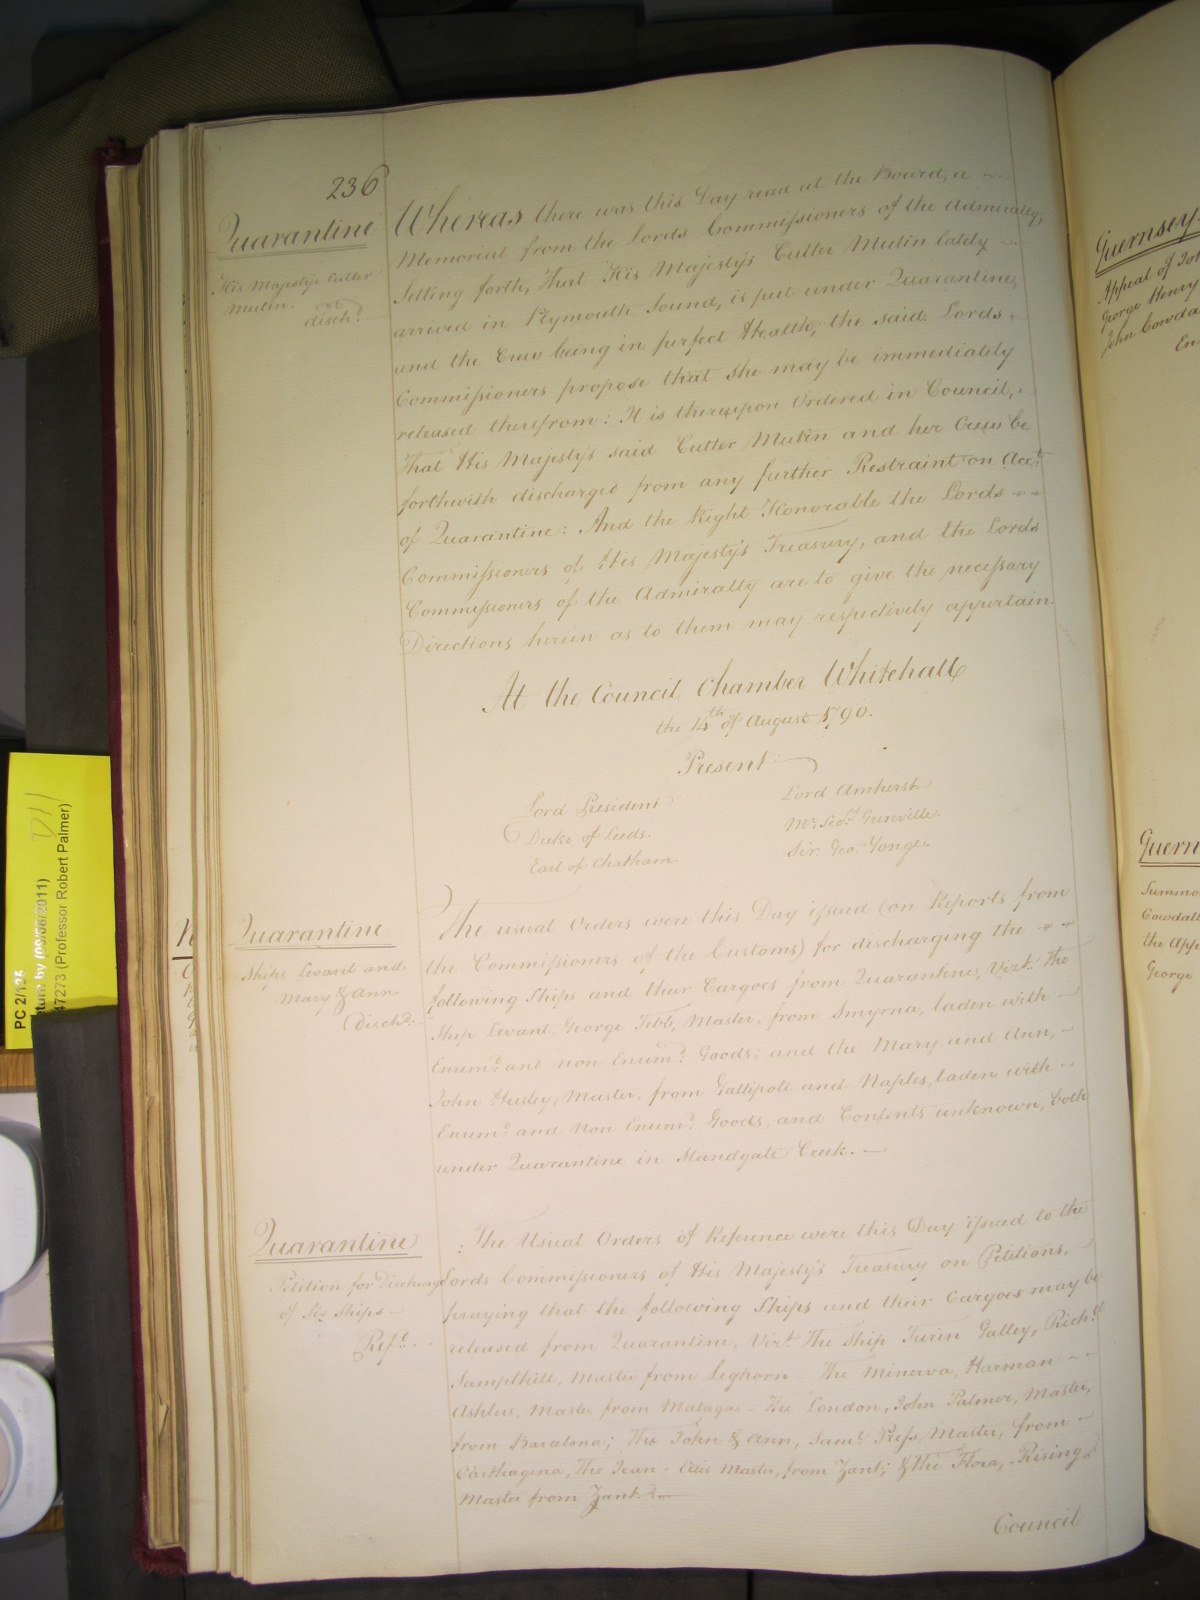 236
Quarantine
His Majesty's Cutter
Mutin.
disch.d
Whereas there was this Day read at the Board, a
Memorial from the Lords Commissioners of the Admiralty,
Setting forth, That His Majesty's Cutter Mutin lately
arrived in Plymouth Sound, is put under Quarantine,
and the Crew being in perfect Health, the said Lords
Commissioners propose that she may be immediately
released therefrom: It is thereupon Ordered in Council,
That His Majesty's said Cutter Mutin and her Crew be
forthwith discharged from any further Restraint on Acc.t
of Quarantine: And the Right Honorable the Lords
Commissioners of His Majesty's Treasury, and the Lords
Commissioners of the Admiralty are to give the necessary
Directions herein as to them may respectively appertain.
At the Council Chamber Whitehall
the 14th of August 1790.
Present
Lord President
Duke of Leeds.
Earl of Chatham.
Lord Amherst.
Mr. Sec.y Grenville.
Sir Geo. Yonge.
Quarantine
Ships Levant and
Mary & Ann
Disch.d
The usual Orders were this Day issued (on Reports from
the Commissioners of the Customs) for discharging the
following Ships and their Cargoes from Quarantine, Vizt. The
Ship Levant, George Tebb, Master, from Smyrna, laden with
Enum.d and non Enum.d Goods; and the Mary and Ann,
John Master, from Gallipoli and Naples, laden with
Enum.d and Non Enum.d Goods, and Contents unknown, both
under Quarantine in Standgate Creek.
Quarantine
Petition for Discharge
of Six Ships
Ref.d
The Usual Orders of Reference were this Day issued to the
Lords Commissioners of His Majesty's Treasury on Petitions,
praying that the following Ships and their Cargoes may be
released from Quarantine, Vizt. The Ship Turin Galley, Rich.d
Master from Leghorn - The Minerva, Harman
Master from Malaga - The London, John Palmer, Master,
from Barcelona; The John & Ann, Sam.l Press, Master, from
Carthagena, The Jean - Master, from Zant; & the Flora, Rising
Master from Zant.
Council
Guernsey
Appeal of
George Henry
John
Guern
Summo
Cowdall
the App
George
PC 2/135
(09/06/2011)
47273 (Professor Robert Palmer)